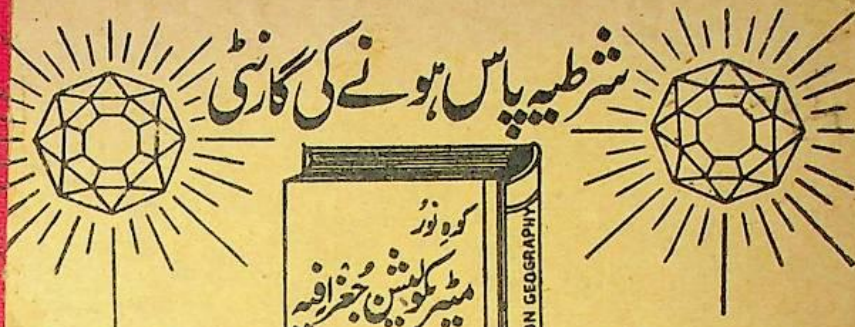 شرطیہ پاس ہونے کی گارنٹی
کوہِ نُور
میٹریکولیشن جُغرافیہ
ON GEOGRAPHY